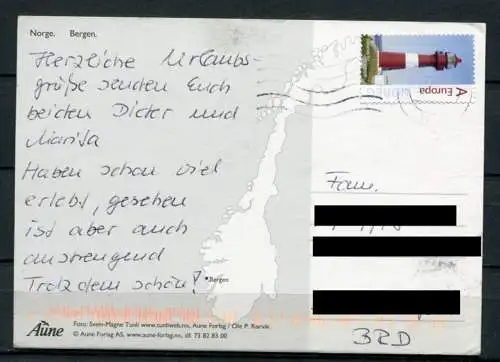 Norge. Bergen.
Herzliche Urlaubs-
grüße senden Euch
beiden Dieter und
Marisa
Haben schon viel
erlebt, gesehen
ist aber auch
anstrengend
Trotzdem schön!
Bergen
A Europa
Fam.
BRD
Aune
Foto: Svein-Magne Tunli www.tunliweb.no, Aune Forlag / Ole P. Rørvik
© Aune Forlag AS, www.aune-forlag.no, tlf. 73 82 83 00